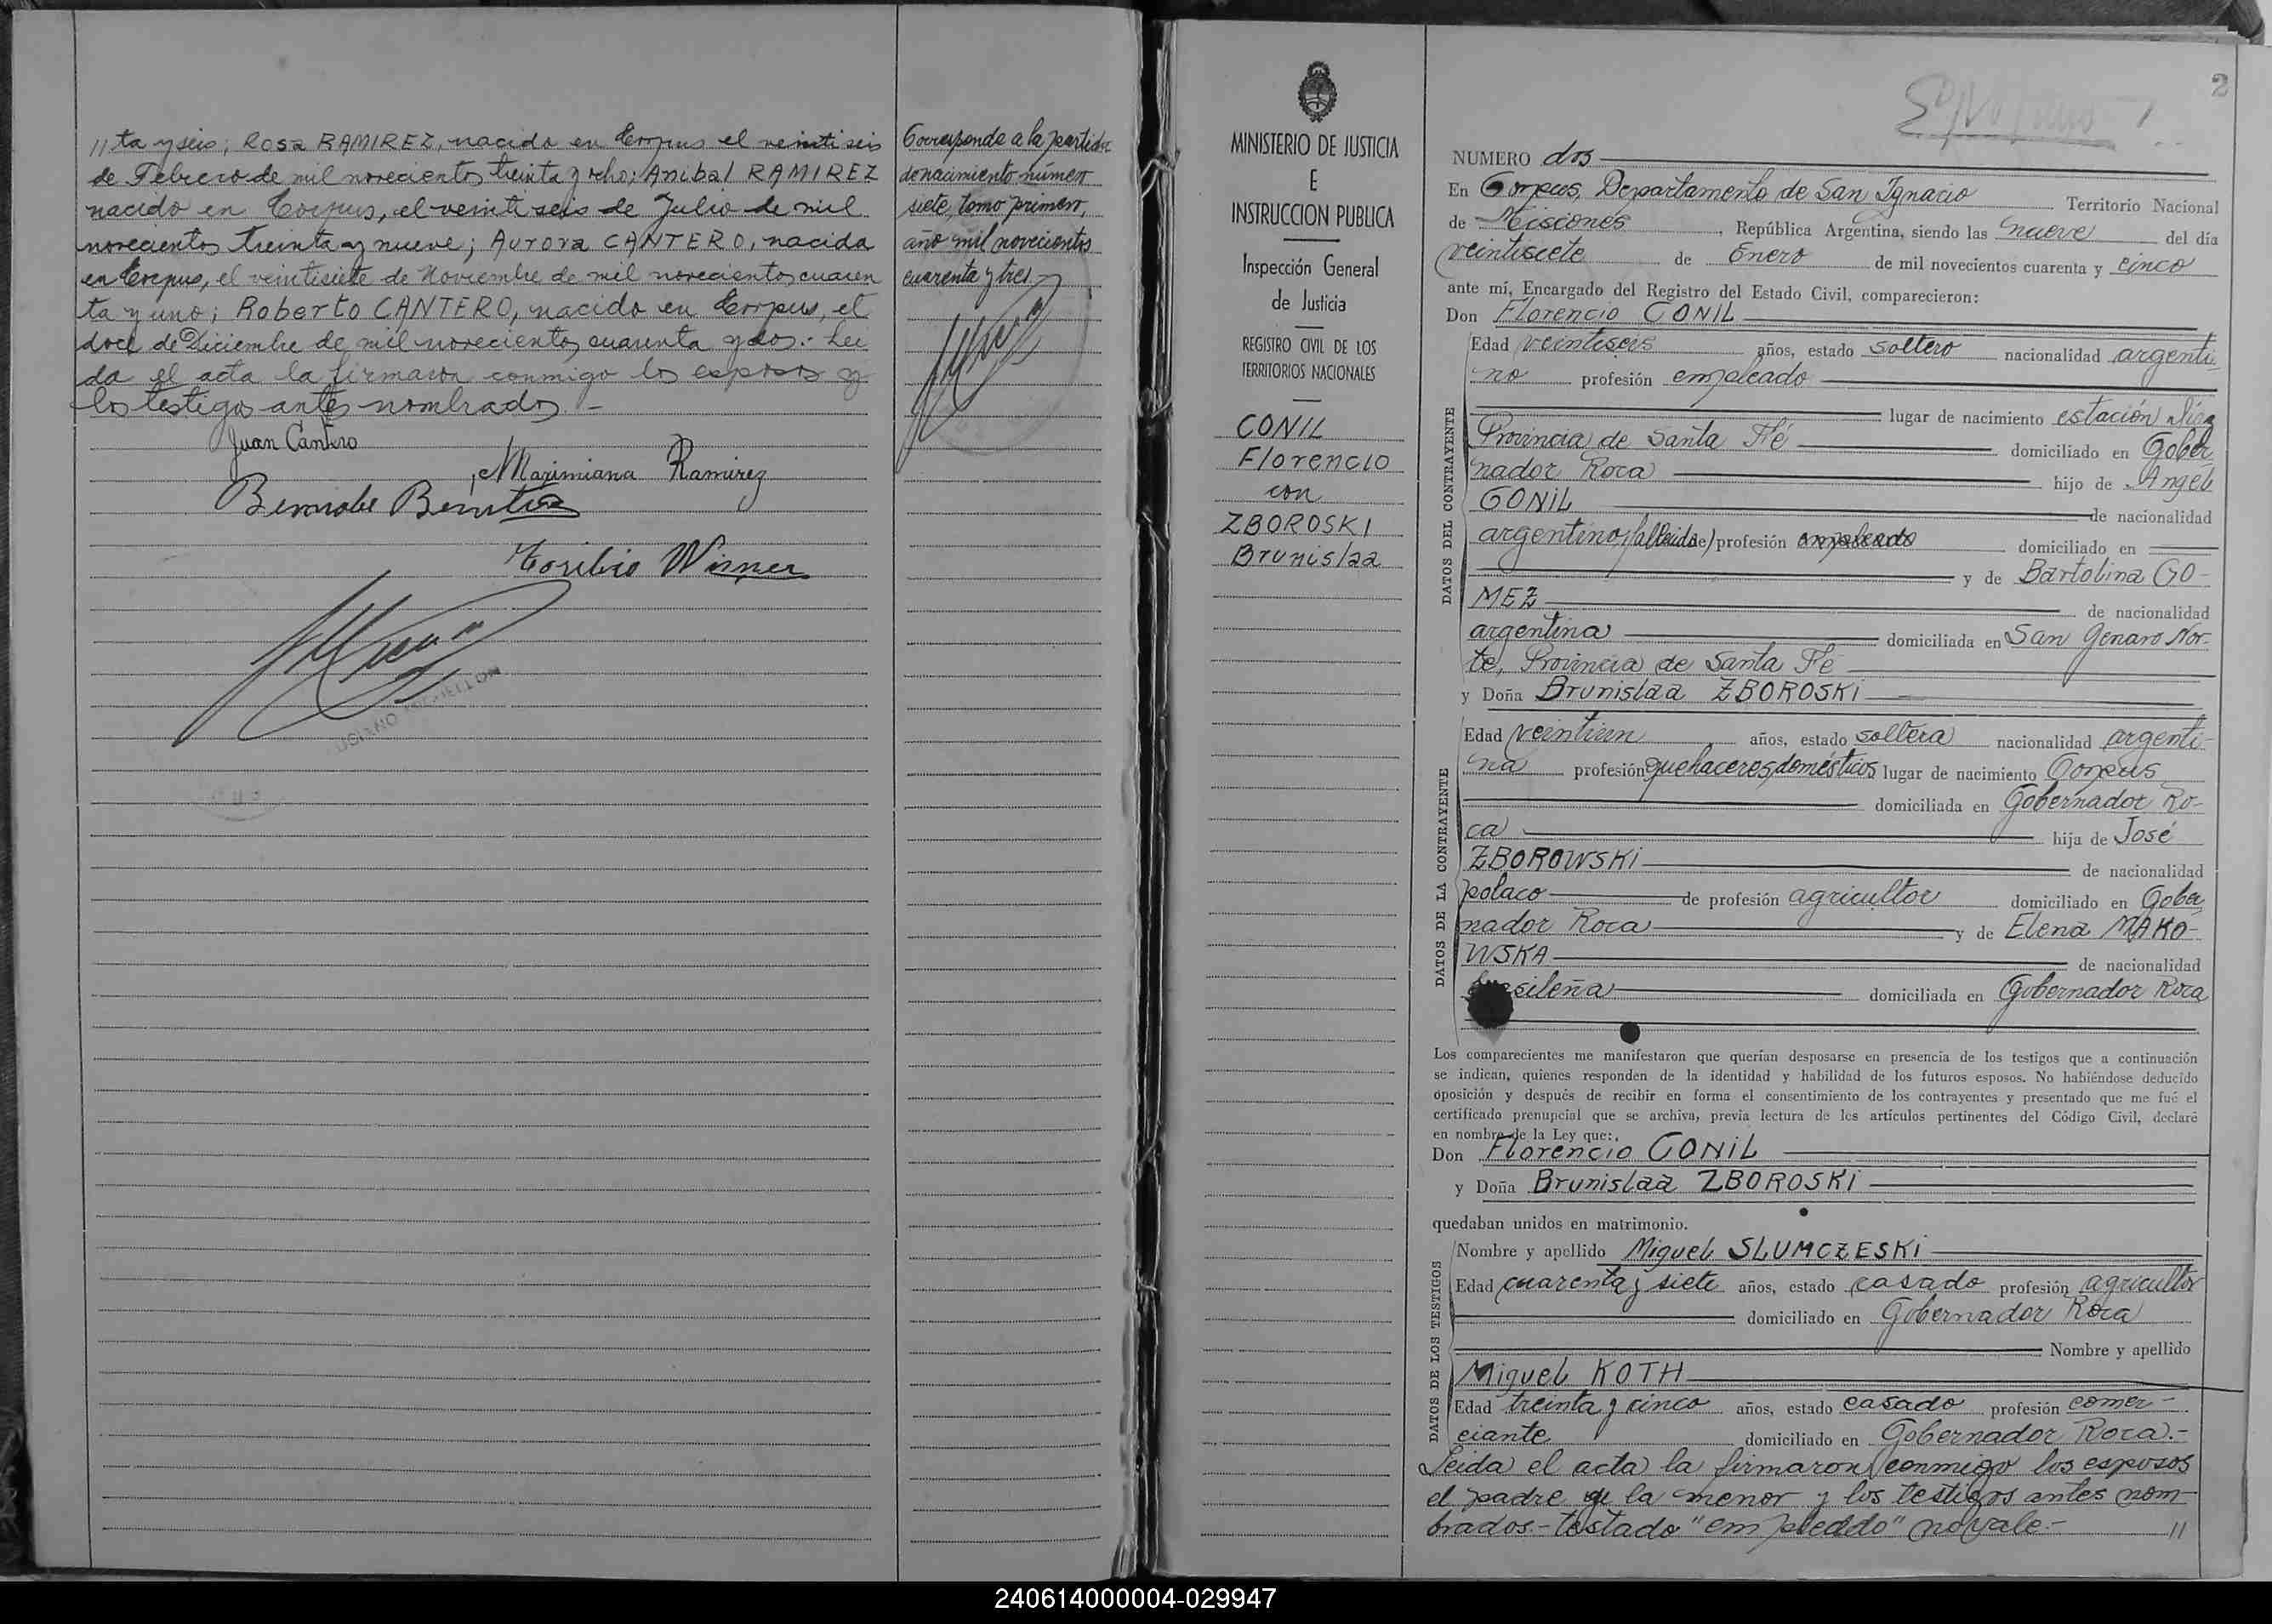 //ta y seis; Rosa RAMIREZ, nacida en Corpus el veintiseis
de Febrero de mil novecientos treinta y ocho; Anibal RAMIREZ
nacido en Corpus, el veintiseis de Julio de mil
novecientos treinta y nueve; Aurora CANTERO, nacida
en Corpus, el veintisiete de Noviembre de mil novecientos cuaren
ta y uno; Roberto CANTERO, nacido en Corpus, el
doce de Diciembre de mil novecientos cuarenta y dos.- Lei
da el acta la firmaron conmigo los esposos y
los testigos antes nombrados.-
Juan Cantero
Maximiana Ramirez
Bernabe Benitez
Toribio
Corresponde a la partida
de nacimiento número
siete, tomo primero,
año mil novecientos
cuarenta y tres
MINISTERIO DE JUSTICIA
E
INSTRUCCION PUBLICA
Inspección General
de Justicia
REGISTRO CIVIL DE LOS
TERRITORIOS NACIONALES
CONIL
Florencio
con
ZBOROSKI
Brunislaa
2
NUMERO dos
En Corpus, Departamento de San Ignacio Territorio Nacional
de Misiones, República Argentina, siendo las nueve del día
veintisiete de Enero de mil novecientos cuarenta y cinco
ante mí, Encargado del Registro del Estado Civil, comparecieron:
Don Florencio CONIL
DATOS DEL CONTRAYENTE
Edad veintiseis años, estado soltero nacionalidad argenti-
no profesión empleado
lugar de nacimiento estación
Provincia de Santa Fé domiciliado en Gober
nador Roca hijo de Angel
CONIL de nacionalidad
argentino, (fallecido) profesión empleado domiciliado en
y de Bartolina GO-
MEZ de nacionalidad
argentina domiciliada en San Genaro Nor-
te, Provincia de Santa Fé
y Doña Brunislaa ZBOROSKI
DATOS DE LA CONTRAYENTE
Edad veintiun años, estado soltera nacionalidad argenti-
na profesión quehaceres domésticos lugar de nacimiento Corpus
domiciliada en Gobernador Ro-
ca hija de José
ZBOROWSKI de nacionalidad
polaco de profesión agricultor domiciliado en Gober
nador Roca y de Elena MAKO-
WSKA de nacionalidad
brasileña domiciliada en Gobernador Roca
Los comparecientes me manifestaron que querían desposarse en presencia de los testigos que a continuación
se indican, quienes responden de la identidad y habilidad de los futuros esposos. No habiéndose deducido
oposición y después de recibir en forma el consentimiento de los contrayentes y presentado que me fué el
certificado prenupcial que se archiva, previa lectura de los artículos pertinentes del Código Civil, declaré
en nombre de la Ley que:
Don Florencio CONIL
y Doña Brunislaa ZBOROSKI
quedaban unidos en matrimonio.
DATOS DE LOS TESTIGOS
Nombre y apellido Miguel SLUMCZESKI
Edad cuarenta y siete años, estado casado profesión agricultor
domiciliado en Gobernador Roca
Nombre y apellido
Miguel KOTH
Edad treinta y cinco años, estado casado profesión comer-
ciante domiciliado en Gobernador Roca.-
Leida el acta la firmaron conmigo los esposos
el padre de la menor y los testigos antes nom-
brados.- testado "empleado" no vale.- //
240614000004-029947